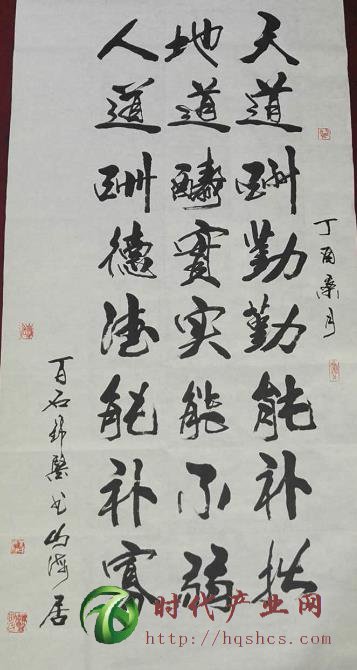 丁酉桑月
天道酬勤勤能补拙
地道醻實实能不弱
人道酬德德能补寡
百石书山海居
时代产业网
http://hqshcs.com